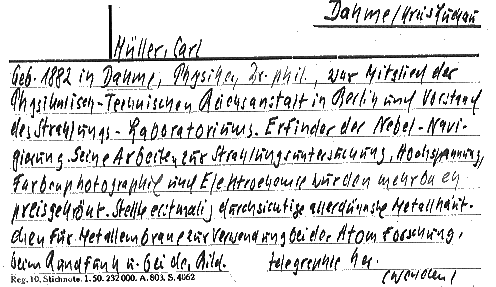 Dahme/Kreis Luckau
Müller, Carl
Geb. 1882 in Dahme, Physiker, Dr. phil., war Mitglied der
Physikalisch-Technischen Reichsanstalt in Berlin und Vorstand
des Strahlungs-Laboratoriums. Erfinder der Nebel-Navi-
gierung. Seine Arbeiten zur Strahlungsuntersuchung, Hochspannung,
Farbenphotographie und Elektrochemie wurden mehrmals
preisgekrönt. Stellte erstmalig durchsichtige allerdünnste Metallhäut-
chen für Metallmembrane zur Verwendung bei der Atom Forschung,
beim Rundfunk u. bei der Bild- telegraphie her.
(wenden!)
Reg. 10. Stichnote. 1. 50. 232 000. A. 803. S. 4062